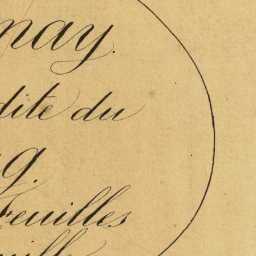 nay.
dite du
g
Feuilles
uille